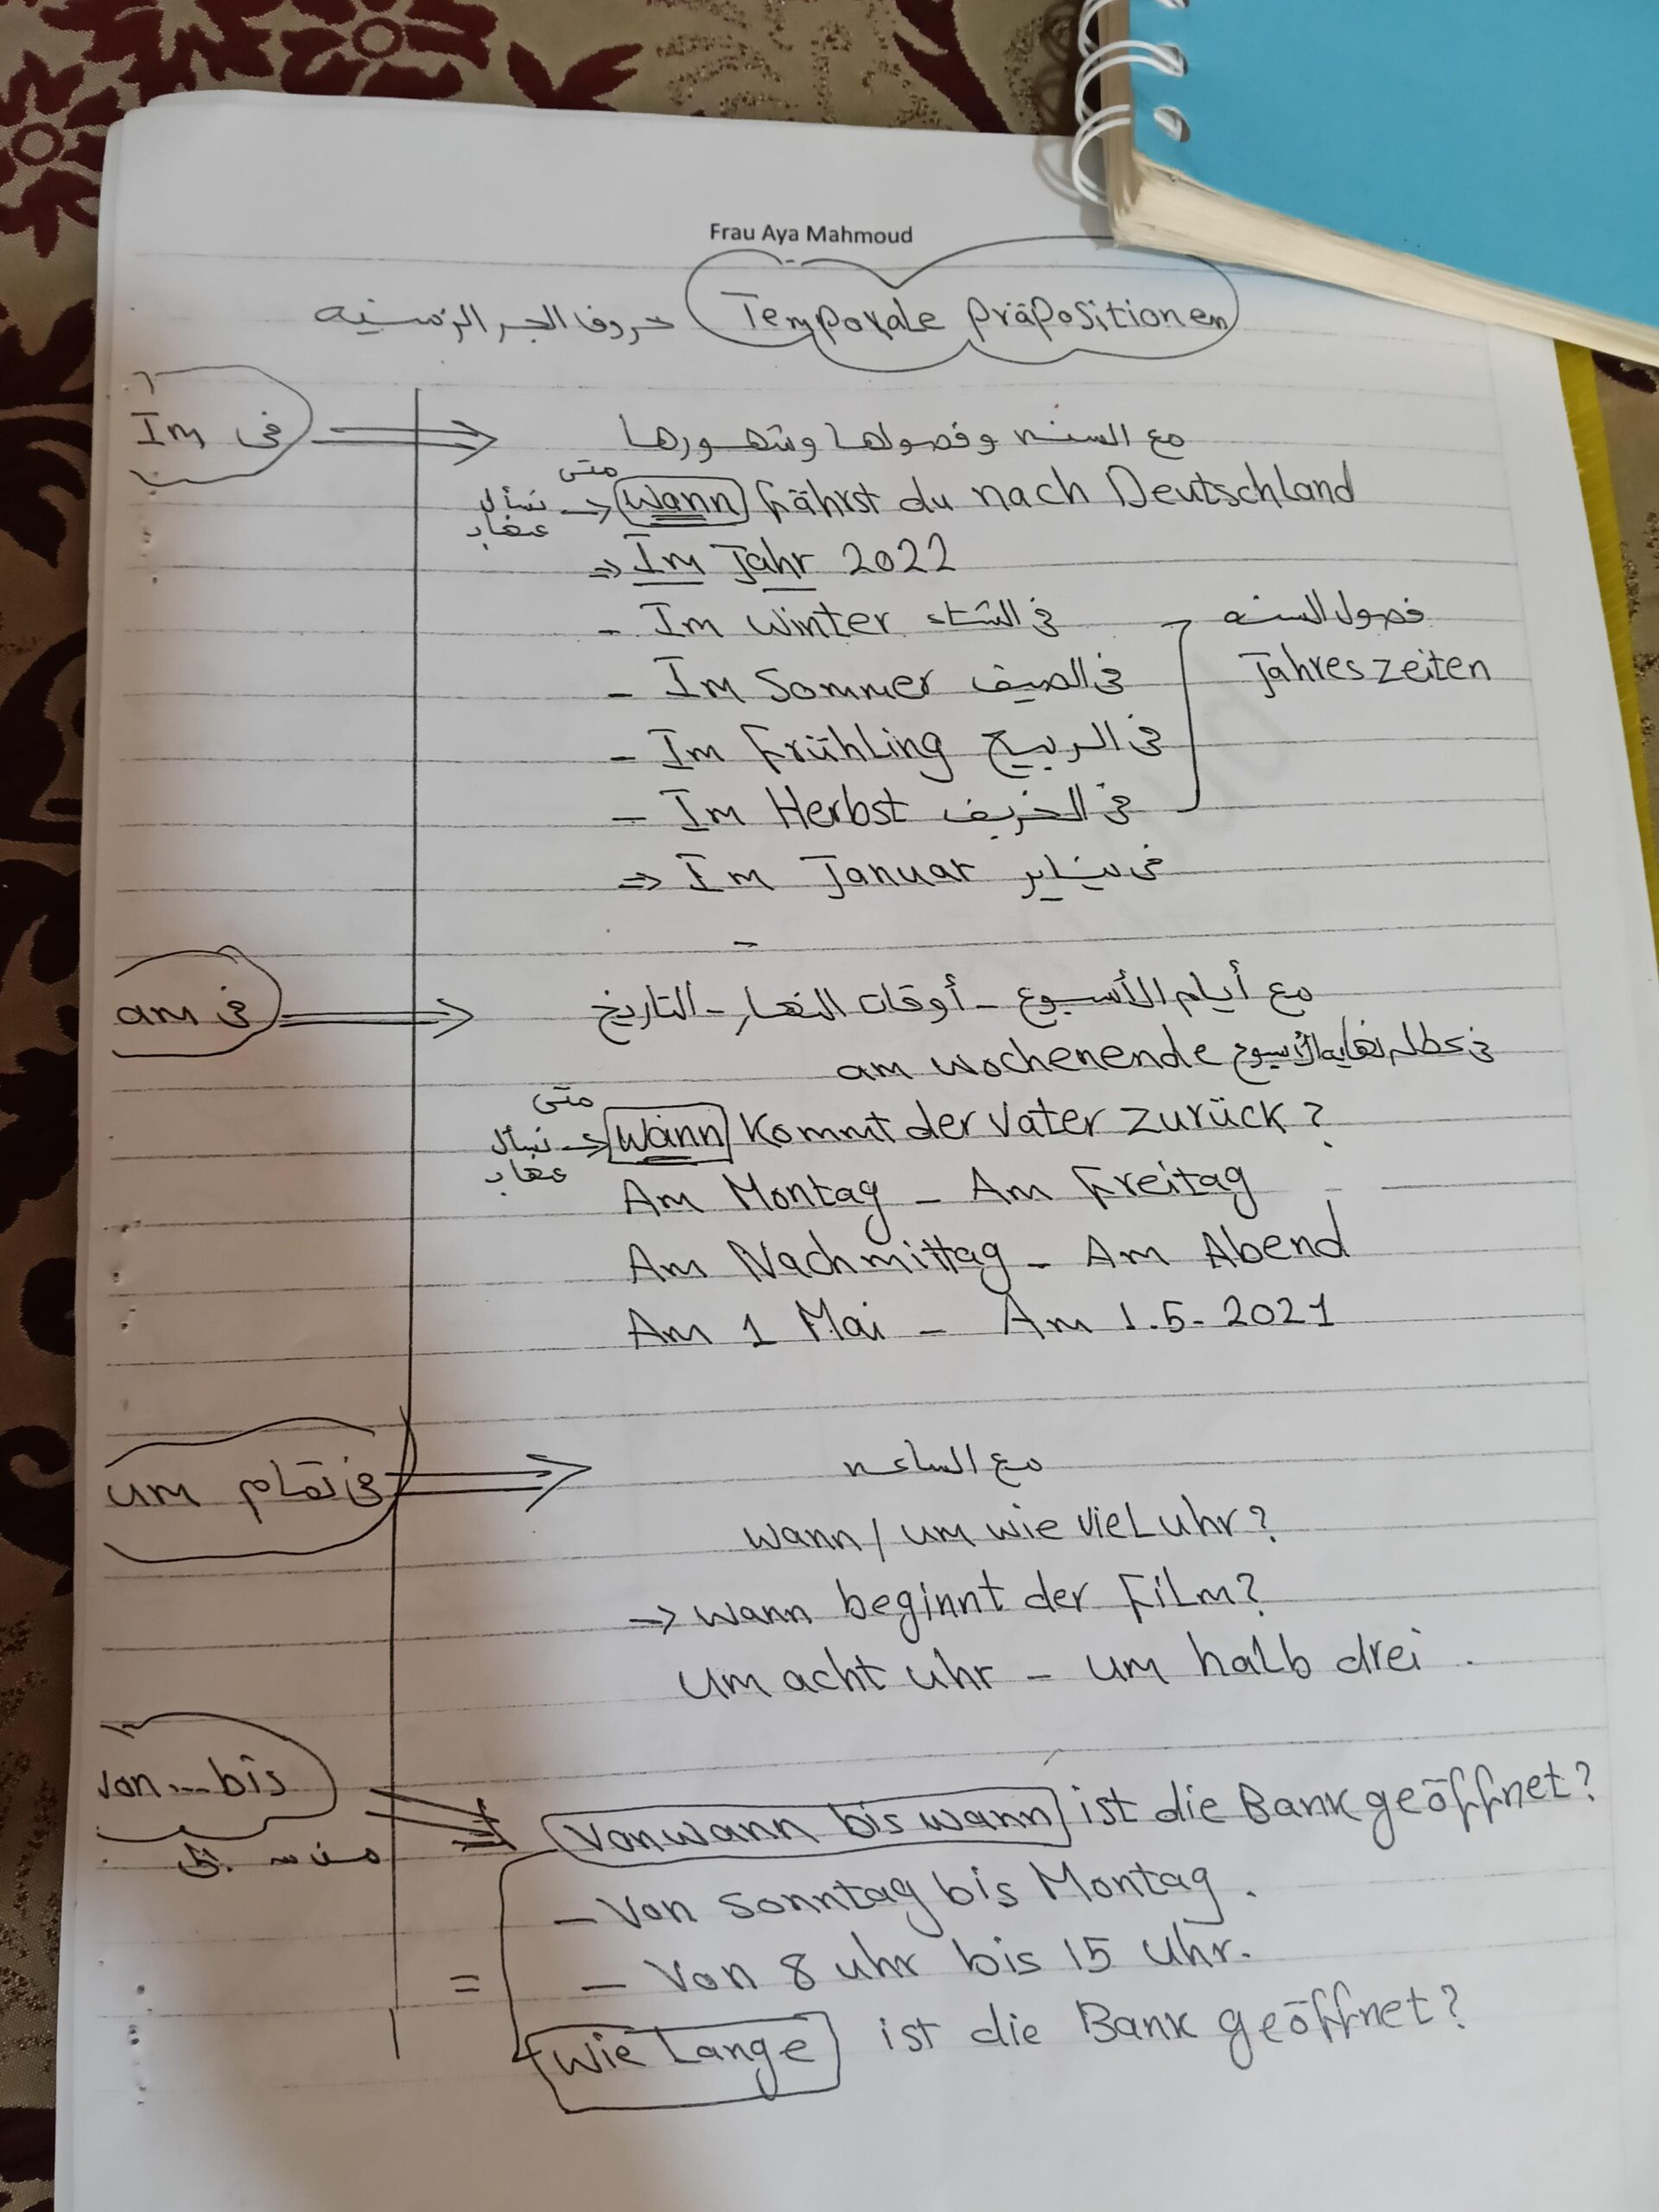 Frau Aya Mahmoud
Temporale Präpositionen حروف الجر الزمنيه
Im فى
مع السنه وفصولها وشهورها
متى
نسأل عنها بـ → Wann fährst du nach Deutschland
⇒ Im Jahr 2022
- Im Winter فى الشتاء
فصول السنه
- Im Sommer فى الصيف
Jahreszeiten
- Im Frühling فى الربيع
- Im Herbst فى الخريف
⇒ Im Januar فى يناير
-
am فى
مع أيام الأسبوع - أوقات النهار - التاريخ
am wochenende فى عطله نهايه الأسبوع
متى
نسأل عنها بـ → Wann kommt der Vater zurück?
Am Montag - Am Freitag
Am Nachmittag - Am Abend
Am 1 Mai - Am 1.5-2021
um فى تمام
مع الساعه
wann / um wie viel uhr?
→ wann beginnt der Film?
Um acht uhr - um halb drei.
von...bis
من إلى
Von wann bis wann ist die Bank geöffnet?
- Von Sonntag bis Montag.
- Von 8 uhr bis 15 Uhr.
= wie Lange ist die Bank geöffnet?